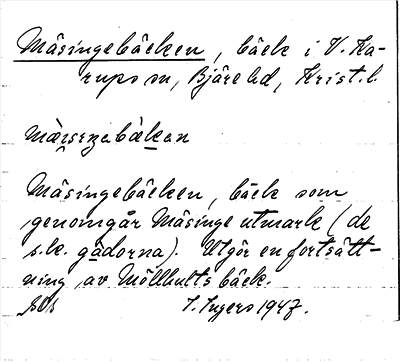 Mäsingebäcken, bäck i V. Ka-
rups sn, Bjäre hd, Krist. l.
Mäsingebäcken, bäck som
genomgår Mäsinge utmark (de
s.k. gådorna). Utgör en fortsätt-
ning av Möllhults bäck.
I. Ingers 1947.